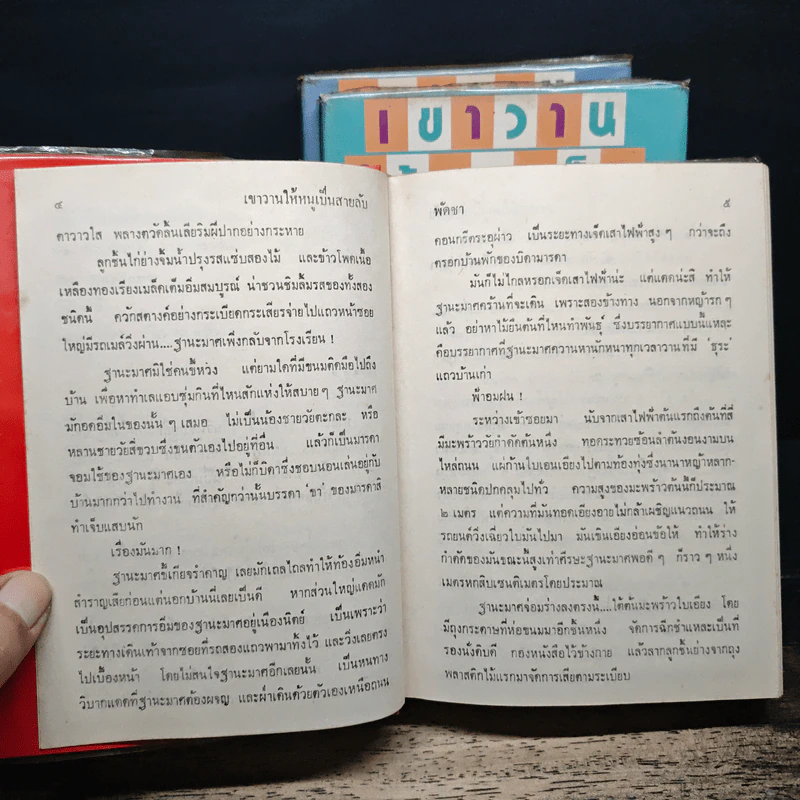 เขาวาน
๔
เขาวานให้หนูเป็นสายลับ
ตาวาวใส พลางตวัดลิ้นเลียริมฝีปากอย่างกระหาย
ลูกชิ้นไก่ย่างจิ้มน้ำปรุงรสแซ่บสองไม้ และข้าวโพดเนื้อ
เหลืองทองเรียงเมล็ดเต็มอิ่มสมบูรณ์ น่าชวนชิมลิ้มรสของทั้งสอง
ชนิดนี้ ควักสตางค์อย่างกระเบียดกระเสียรจ่ายไปแถวหน้าซอย
ใหญ่มีรถเมล์วิ่งผ่าน....ฐานะมาศเพิ่งกลับจากโรงเรียน !
ฐานะมาศมิใช่คนขี้หวง แต่ยามใดที่มีขนมติดมือไปถึง
บ้าน เพื่อหาทำเลแอบซุ่มกินที่ไหนสักแห่งให้สบาย ๆ ฐานะมาศ
มักอดอิ่มในของนั้น ๆ เสมอ ไม่เป็นน้องชายวัยตะกละ หรือ
หลานชายวัยสี่ขวบซึ่งขนตัวเองไปอยู่ที่อื่น แล้วก็เป็นมารดา
จอมใช้ของฐานะมาศเอง หรือไม่ก็บิดาซึ่งชอบนอนเล่นอยู่กับ
บ้านมากกว่าไปทำงาน ที่สำคัญกว่านั้นบรรดา 'ขา' ของมารดาสิ
ทำเจ็บแสบนัก
เรื่องมันมาก !
ฐานะมาศขี้เกียจรำคาญ เลยมักเถลไถลทำให้ท้องอิ่มหนำ
สำราญเสียก่อนแต่นอกบ้านนี่เลยเป็นดี หากส่วนใหญ่แดดมัก
เป็นอุปสรรคการอิ่มของฐานะมาศอยู่เนืองนิตย์ เป็นเพราะว่า
ระยะทางเดินเท้าจากซอยที่รถสองแถวพามาทิ้งไว้ และวิ่งเลยตรง
ไปเบื้องหน้า โดยไม่สนใจฐานะมาศอีกเลยนั้น เป็นหนทาง
วิบากแดดที่ฐานะมาศต้องผจญ และฝ่าเดินด้วยตัวเองเหนือถนน
พัดชา
๕
คอนกรีตระอุผ่าว เป็นระยะทางเจ็ดเสาไฟฟ้าสูง ๆ กว่าจะถึง
ตรอกบ้านพักของบิดามารดา
มันก็ไม่ไกลหรอกเจ็ดเสาไฟฟ้าน่ะ แต่แดดน่ะสิ ทำให้
ฐานะมาศคร้านที่จะเดิน เพราะสองข้างทาง นอกจากหญ้ารก ๆ
แล้ว อย่าหาไม้ยืนต้นที่ไหนทำพันธุ์ ซึ่งบรรยากาศแบบนี้แหละ
คือบรรยากาศที่ฐานะมาศควานหานักหนาทุกเวลาวานที่มี 'ธุระ'
แถวบ้านเก่า
ฟ้าอมฝน !
ระหว่างเข้าซอยมา นับจากเสาไฟฟ้าต้นแรกถึงต้นที่สี่
มีมะพร้าววัยกำดัดต้นหนึ่ง ทอดระทวยช้อนลำต้นงอนงามบน
ไหล่ถนน แผ่ก้านใบเอนเอียงไปตามท้องทุ่งซึ่งนานาหญ้าหลาก-
หลายชนิดปกคลุมไปทั่ว ความสูงของมะพร้าวต้นนี้ก็ประมาณ
๒ เมตร แต่ความที่มันทอดเอียงอายไม่กล้าเผชิญแนวถนน ให้
รถยนต์วิ่งเฉี่ยวใบมันไปมา มันเขินเอียงอ่อนข้อให้ ทำให้ร่าง
กำดัดของมันขณะนี้สูงเท่าศีรษะฐานะมาศพอดี ๆ ก็ราว ๆ หนึ่ง
เมตรหกสิบเซนติเมตรโดยประมาณ
ฐานะมาศจ่อมร่างลงตรงนี้....ใต้ต้นมะพร้าวใบเอียง โดย
มีถุงกระดาษที่ห่อขนมมาอีกชั้นหนึ่ง จัดการฉีกชำแหละเป็นที่
รองนั่งดิบดี กองหนังสือไว้ข้างกาย แล้วลากลูกชิ้นย่างจากถุง
พลาสติกไม้แรกมาจัดการเสียตามระเบียบ